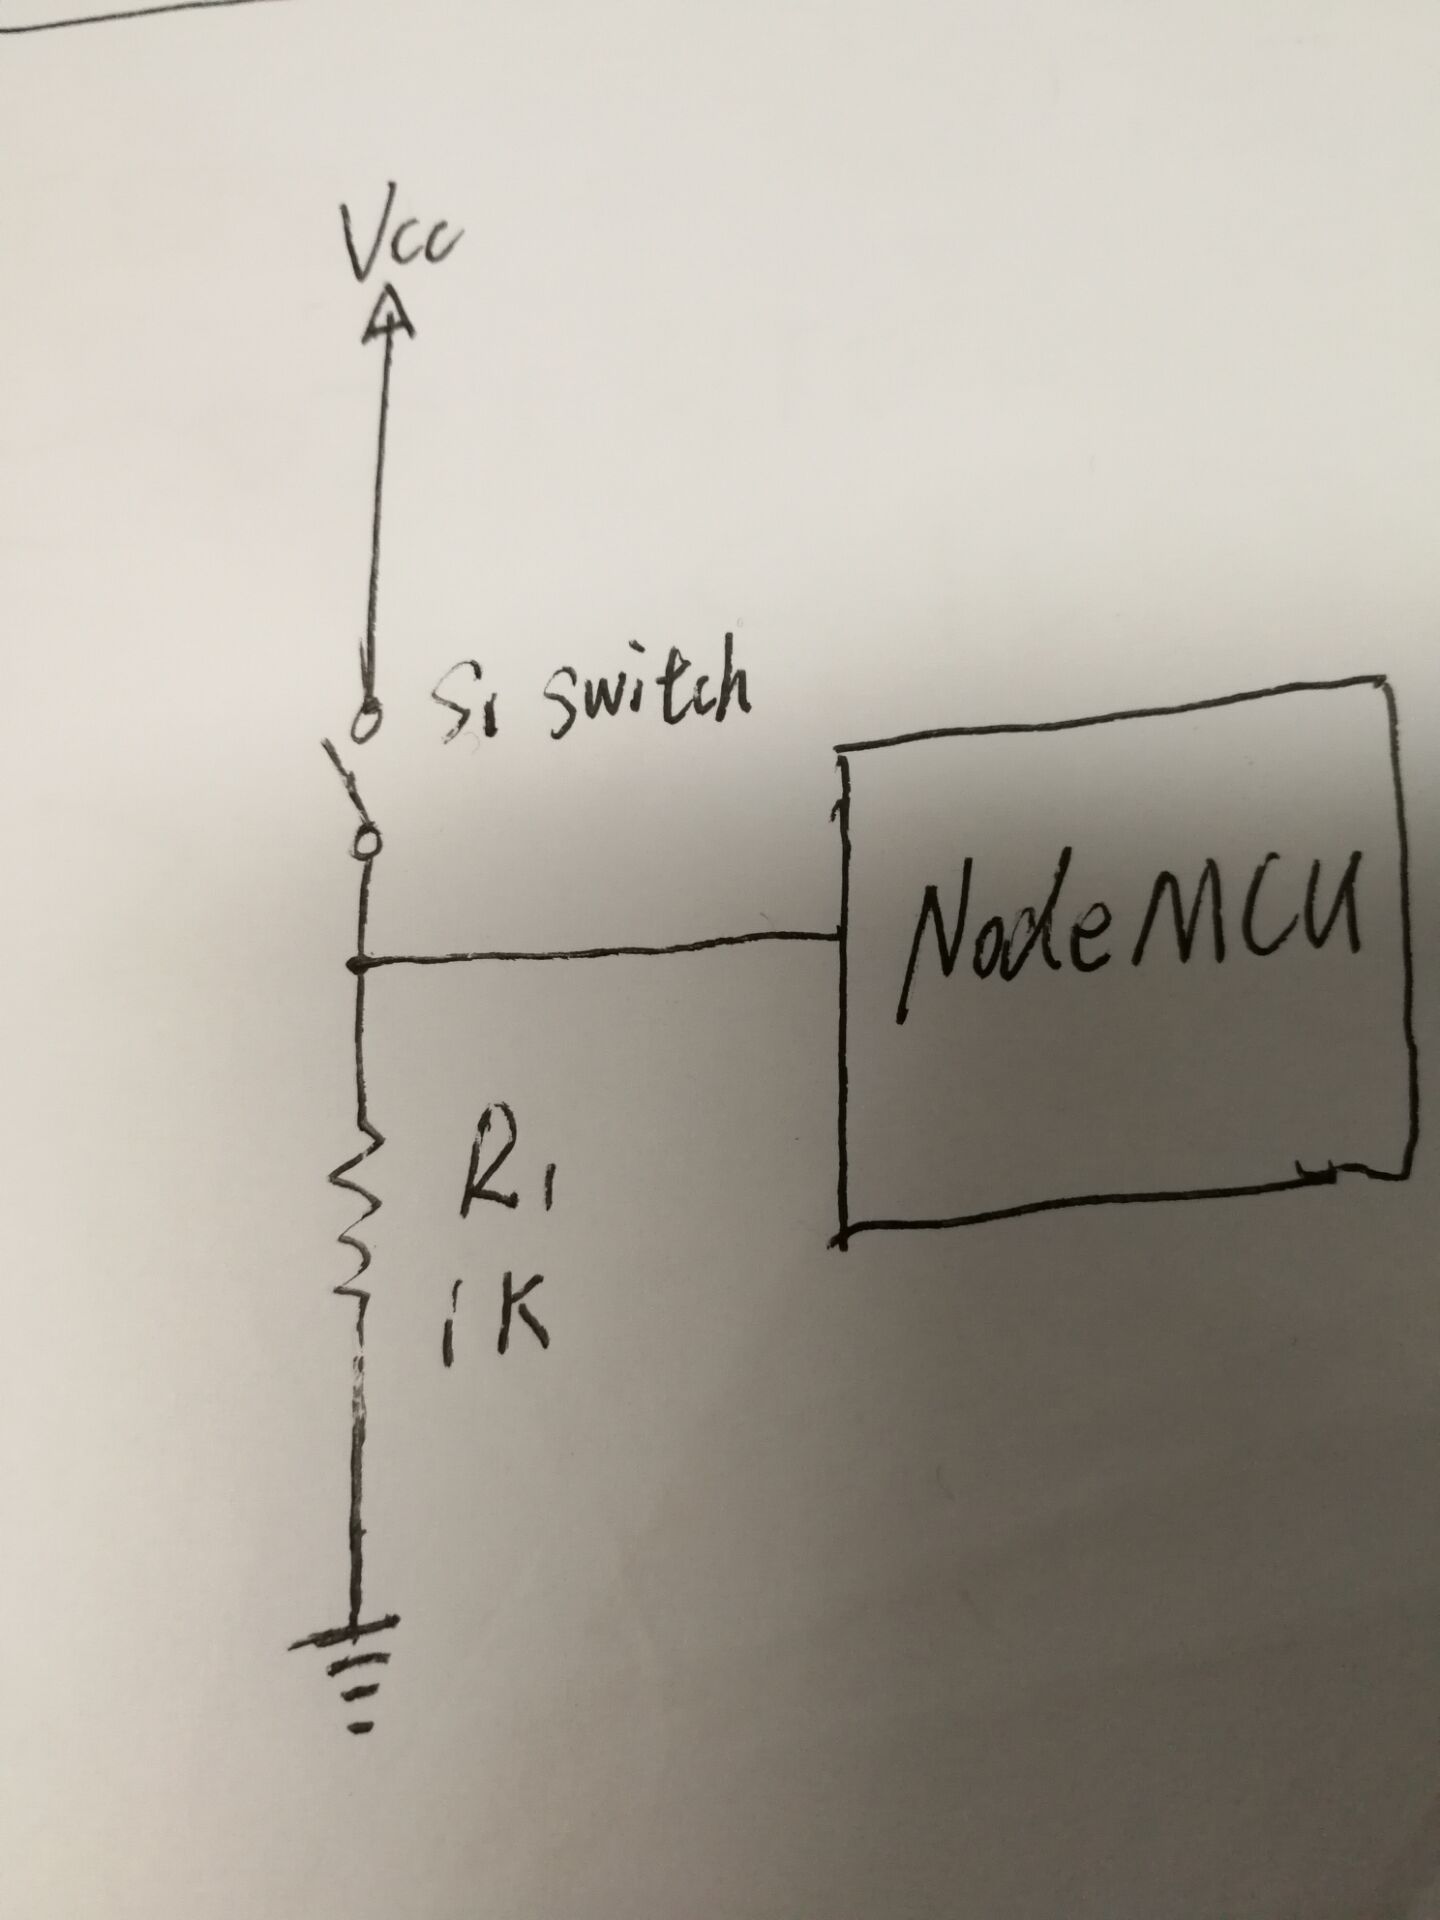 Vcc
S1 switch
NodeMCU
R1
1K